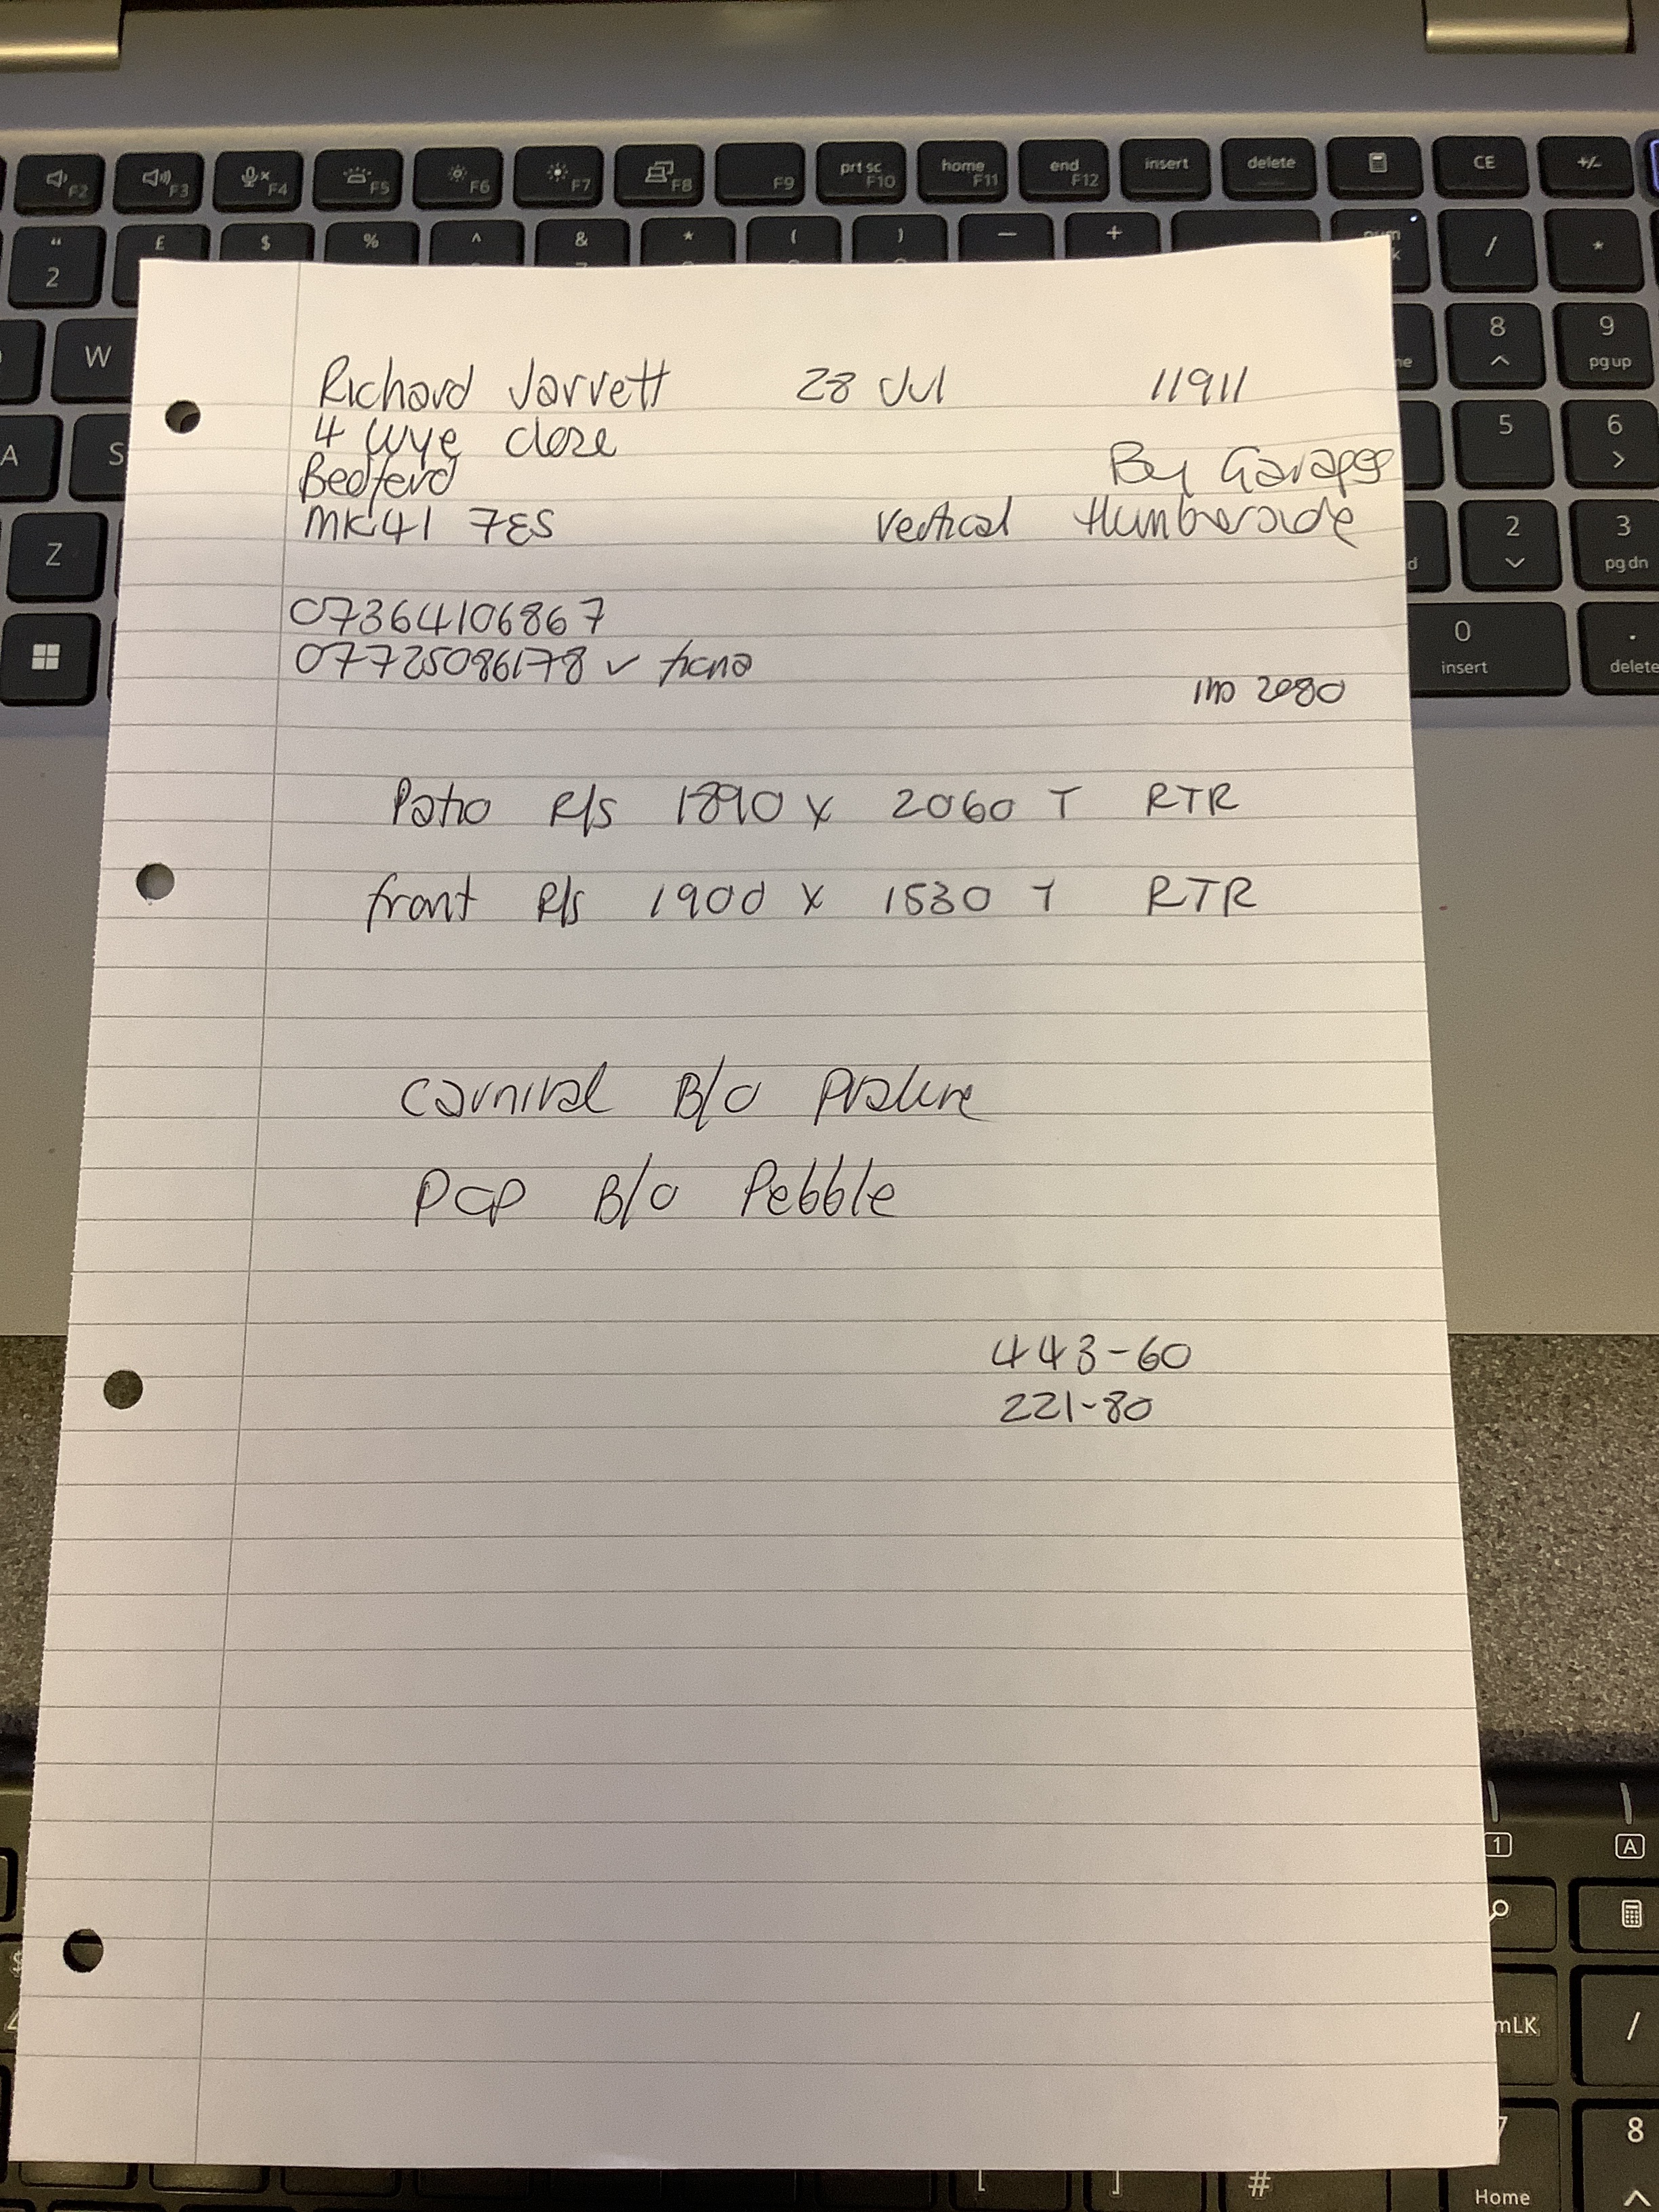 Richard Jarrett 28 Jul 11911
4 Wye close
Bedford By Garages
MK41 7ES Vertical Humberside
07364106867
07725086178 ✓ fiona
2080
Patio R/s 1890 x 2060 T RTR
front R/s 1900 x 1530 T RTR
Carnival B/O Praline
Pop B/O Pebble
443-60
221-80
F2 F3 F4 F5 F6 F7 F8 F9 prt sc F10 home F11 end F12 insert delete CE +/-
" £ $ % ^ & * ( ) — + / *
2
W 8 9 pg up
A S 5 6
Z 2 3 pg dn
0 insert . delete
1 A
mLK /
7 Home 8
[ ] #